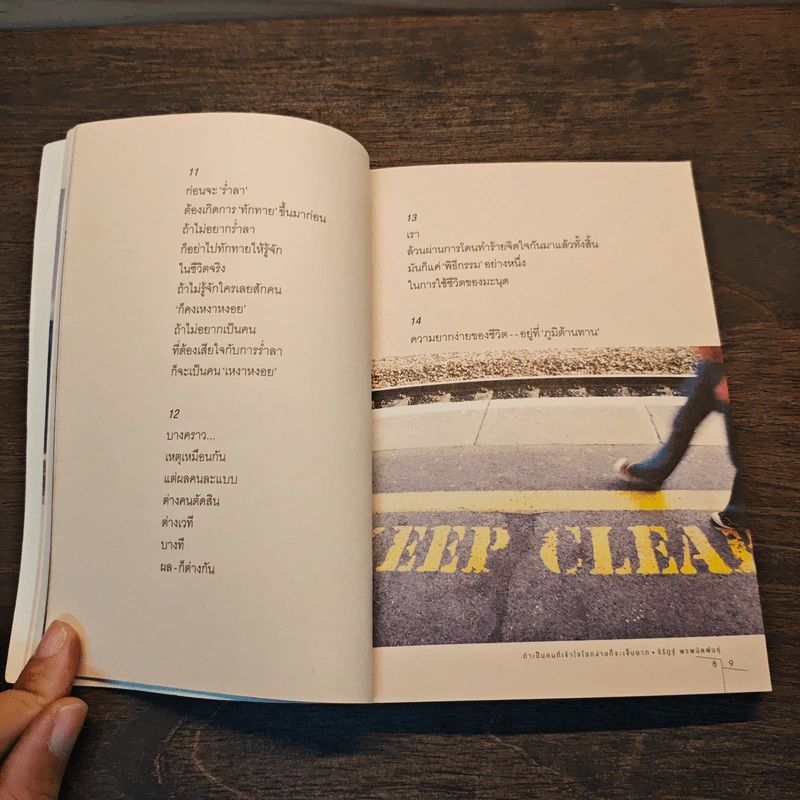 11
ก่อนจะ 'ร่ำลา'
ต้องเกิดการ 'ทักทาย' ขึ้นมาก่อน
ถ้าไม่อยากร่ำลา
ก็อย่าไปทักทายให้รู้จัก
ในชีวิตจริง
ถ้าไม่รู้จักใครเลยสักคน
'ก็คงเหงาหงอย'
ถ้าไม่อยากเป็นคน
ที่ต้องเสียใจกับการร่ำลา
ก็จะเป็นคน 'เหงาหงอย'
12
บางคราว...
เหตุเหมือนกัน
แต่ผลคนละแบบ
ต่างคนตัดสิน
ต่างเวที
บางที
ผล-ก็ต่างกัน
13
เรา
ล้วนผ่านการโดนทำร้ายจิตใจกันมาแล้วทั้งสิ้น
มันก็แค่ 'พิธีกรรม' อย่างหนึ่ง
ในการใช้ชีวิตของมะนุด
14
ความยากง่ายของชีวิต--อยู่ที่ 'ภูมิต้านทาน'
EEP CLEA
ถ้าเป็นคนที่เข้าใจโลกง่ายก็จะเจ็บยาก •
8 9